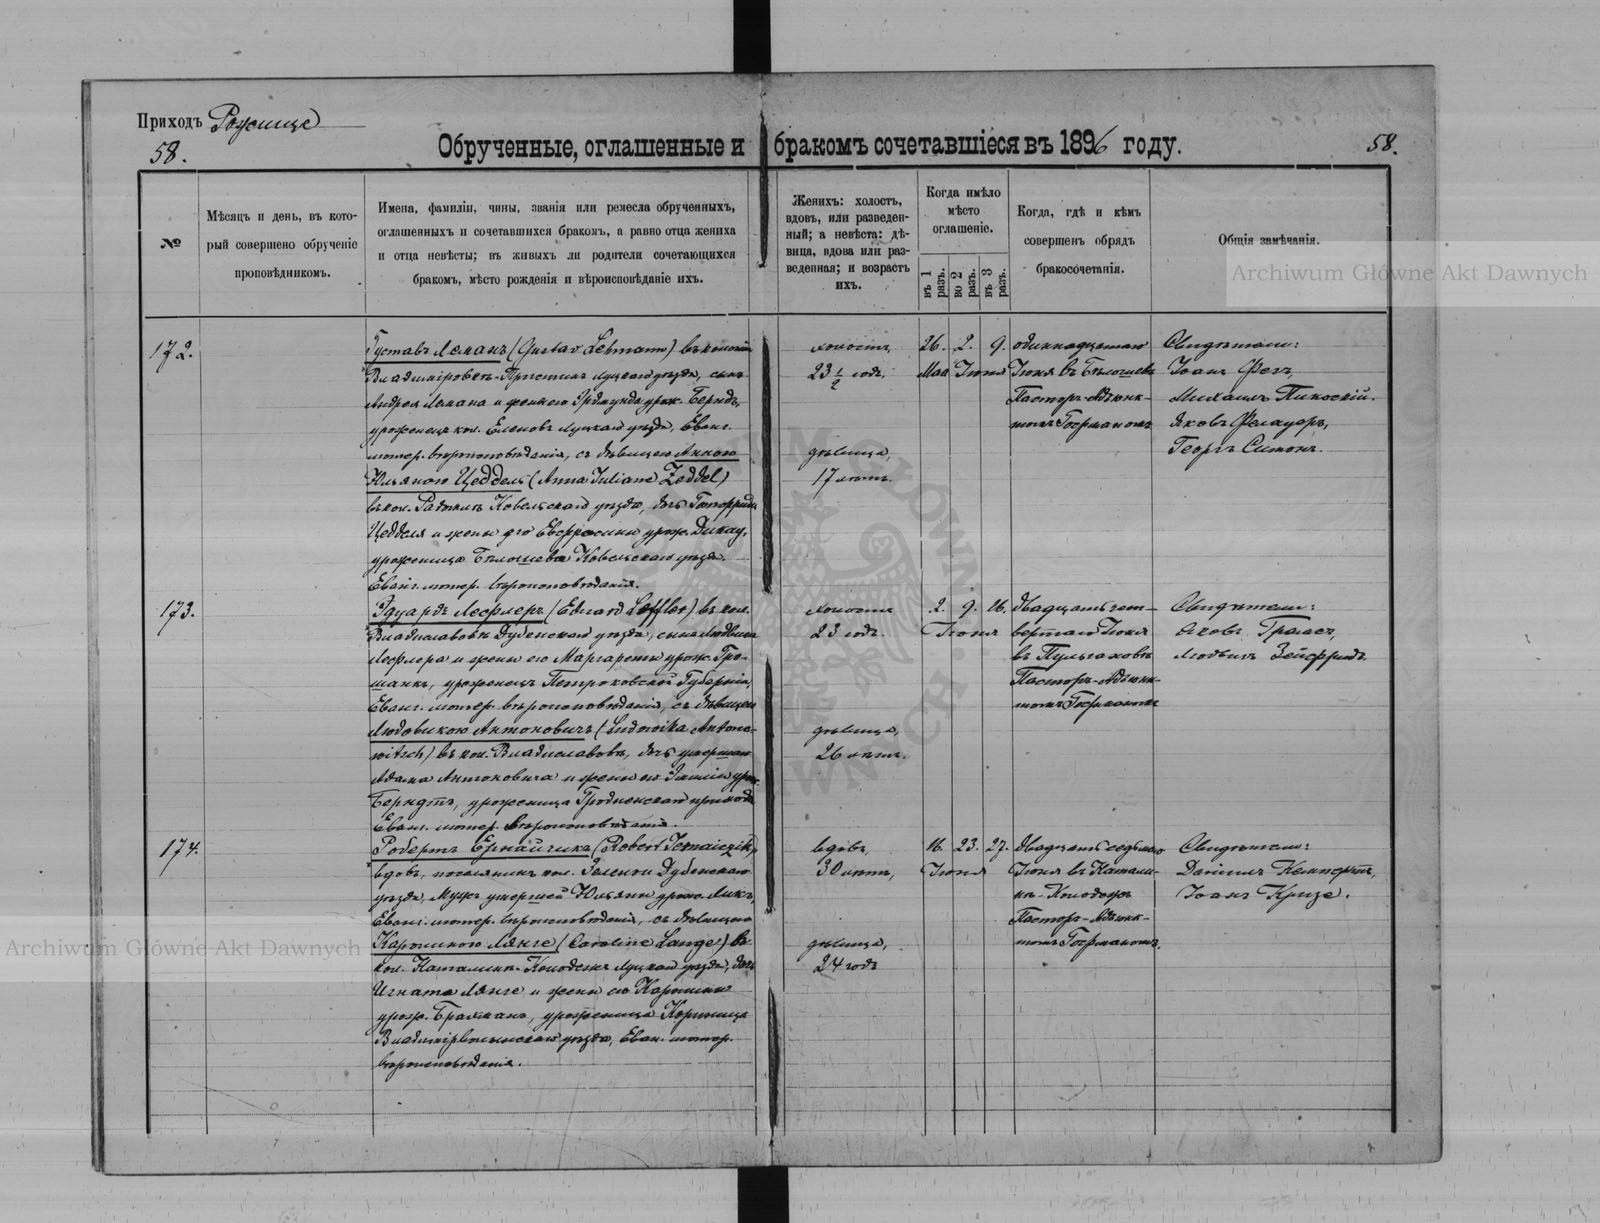 Приходъ Рожище
58.
Обрученные, оглашенные и бракомъ сочетавшіеся въ 1896 году.
58.
№
Мѣсяцъ и день, въ кото-
рый совершено обрученіе
проповѣдникомъ.
Имена, фамиліи, чины, званія или ремесла обрученныхъ,
оглашенныхъ и сочетавшихся бракомъ, а равно отца жениха
и отца невѣсты; въ живыхъ ли родители сочетающихся
бракомъ, мѣсто рожденія и вѣроисповѣданіе ихъ.
Женихъ: холостъ,
вдовъ, или разведен-
ный; а невѣста: дѣ-
вица, вдова или раз-
веденная; и возрастъ
ихъ.
Когда имѣло
мѣсто
оглашеніе.
въ 1 разъ.
во 2 разъ.
въ 3 разъ.
Когда, гдѣ и кѣмъ
совершенъ обрядъ
бракосочетанія.
Общія замѣчанія.
Archiwum Główne Akt Dawnych
172.
Густавъ Леманъ (Gustav Lehmann) въ колоніи
Владимировкѣ Луцкаго уѣзда, сынъ
Андрея Лемана и урож. Берндъ,
уроженецъ кол. Еленовъ Луцкаго уѣзда, Еванг.
лютер. вѣроисповѣданія, съ дѣвицею Анною
Юльяною Цеддель (Anna Juliane Zeddel)
въ кол. Ковельскаго уѣзда, дочь Готфрида
Цедделя и жены его Евфросины урож. Дикау,
уроженица Бѣлошева Ковельскаго уѣзда.
Еванг. лютер. вѣроисповѣданія.
холостъ,
23 ½ годъ,
дѣвица,
17 лѣтъ.
26. 2. 9.
Мая Іюня
одиннадцатаго
Іюня въ Бѣлошевѣ
Пасторъ-Адъюнк-
томъ Гасрманомъ
Свидѣтели:
Іоанъ Фетъ,
Михаилъ Пикоскій.
Яковъ Флатуеръ,
Георгъ Симонъ.
173.
Эдуардъ Лефлеръ (Eduard Löffler) въ кол.
Владиславовкѣ Дубенскаго уѣзда, сынъ Людвига
Лефлера и жены его Маргареты урож. Гро-
манкъ, уроженецъ Петроковской Губерніи,
Еванг. лютер. вѣроисповѣданія, съ дѣвицею
Людовикою Антоновичъ (Ludowika Antono-
witsch) въ кол. Владиславовкѣ, дочь умершаго
Адама Антоновича и жены его Эмиліи урож.
Берндтъ, уроженица Гродненскаго прихода
Еванг. лютер. вѣроисповѣданія.
холостъ
23 годъ.
дѣвица,
26 лѣтъ.
2. 9. 16.
Іюня
двадцать чет-
вертаго Іюня
въ Пульгановѣ
Пасторъ-Адъюнк-
томъ
Свидѣтели:
Яковъ
Людвигъ Зейфридъ.
174.
Робертъ Ернайчикъ (Robert Jernaiczik),
вдовъ, поселянинъ кол. Зеленки Дубенскаго
уѣзда, Мужъ умершей Юльяны урож. Ликъ,
Еванг. лютер. вѣроисповѣданія, съ дѣвицею
Каролиною Лянге (Caroline Lange) въ
кол. Каталинъ-Колодежъ Луцкаго уѣзда, дочь
Игната Лянге и жены его Каролины
урож. Браманъ, уроженица Кориница
Владимірволынскаго уѣзда, Еван. лютер.
вѣроисповѣданія.
вдовъ,
30 лѣтъ,
дѣвица,
24 годъ
16. 23. 27.
Іюня
двадцать седьмаго
Іюня въ Катали-
нъ-Колодежъ
Пасторъ-Адъюнк-
томъ
Свидѣтели:
Даніилъ Кемпертъ,
Іоанъ Кризе.
Archiwum Główne Akt Dawnych